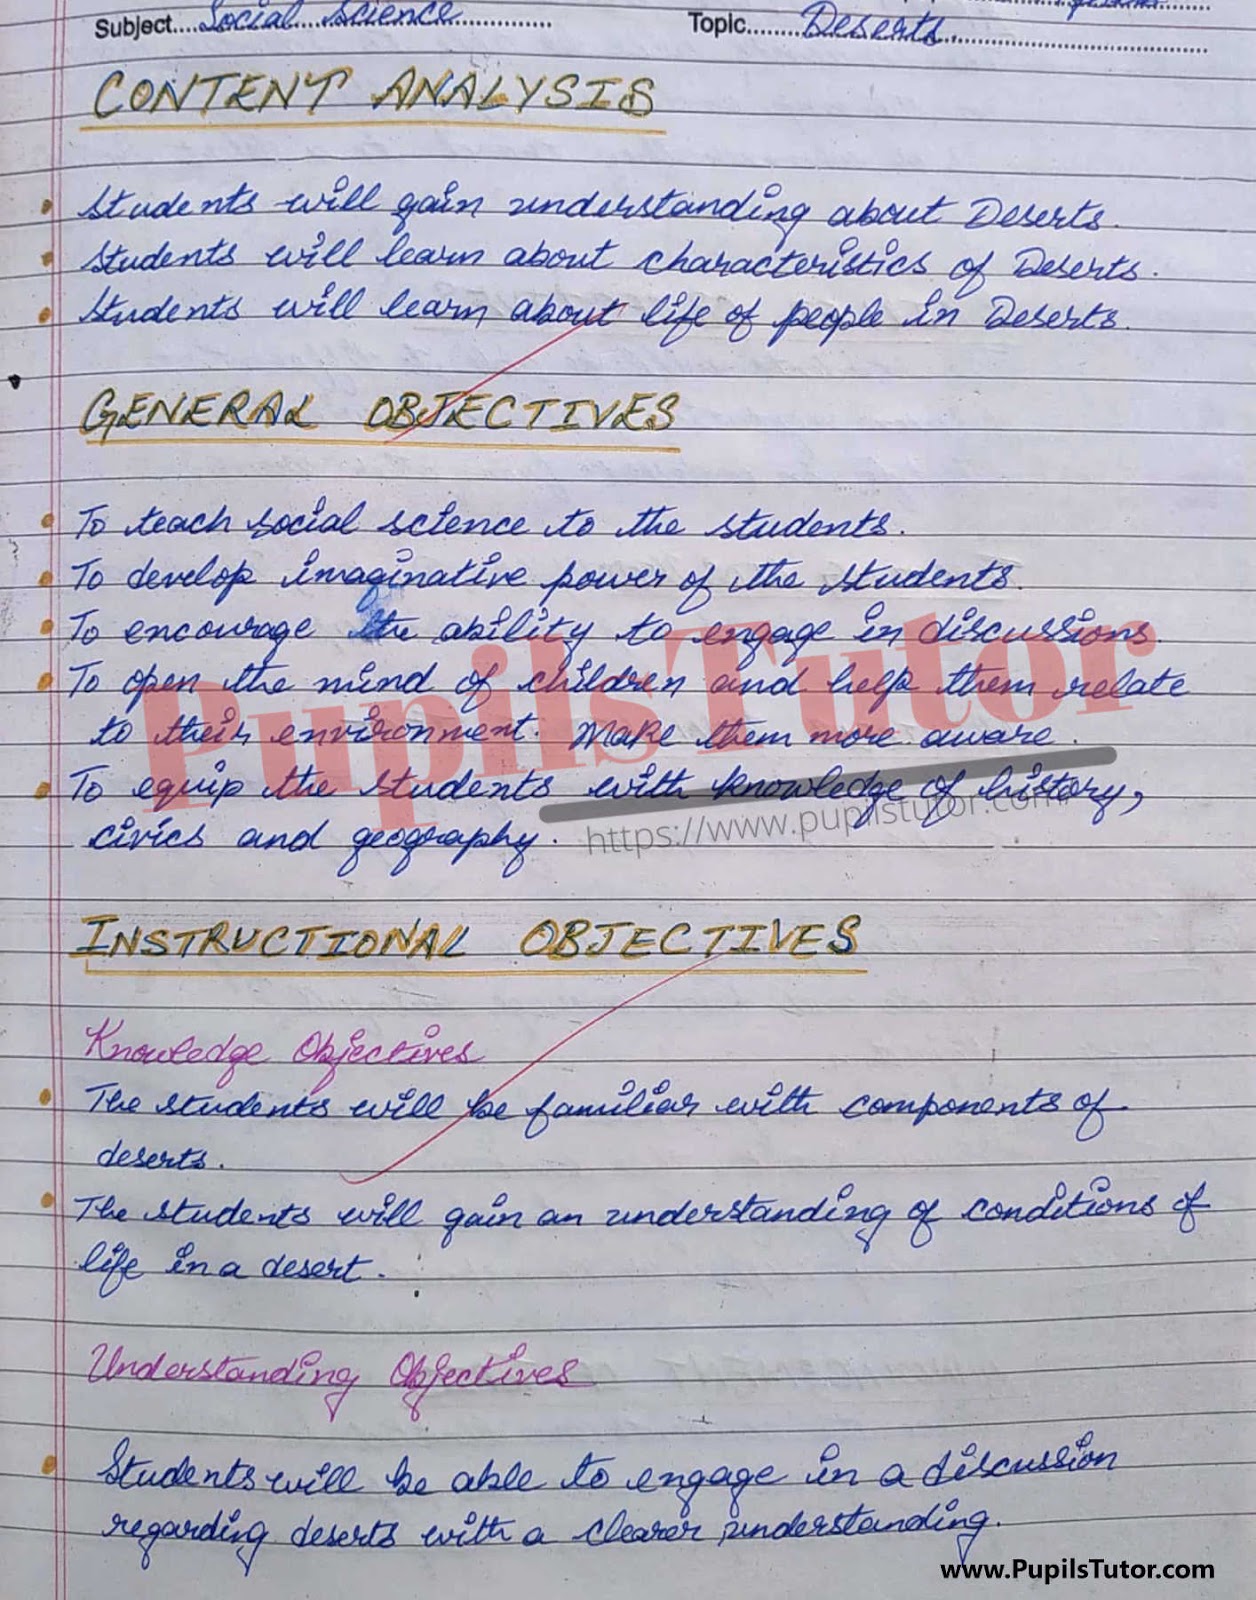 Subject....Social Science............... Topic........Deserts.............................
CONTENT ANALYSIS
• Students will gain understanding about Deserts.
• Students will learn about characteristics of Deserts.
• Students will learn about life of people in Deserts.
GENERAL OBJECTIVES
• To teach social science to the students.
• To develop imaginative power of the students.
• To encourage the ability to engage in discussions.
• To open the mind of children and help them relate
to their environment. Make them more aware.
• To equip the students with knowledge of history,
civics and geography.
PupilsTutor
https://www.pupilstutor.com/
INSTRUCTIONAL OBJECTIVES
Knowledge Objectives
• The students will be familiar with components of
deserts.
• The students will gain an understanding of conditions of
life in a desert.
Understanding Objectives
• Students will be able to engage in a discussion
regarding deserts with a clearer understanding.
www.PupilsTutor.com